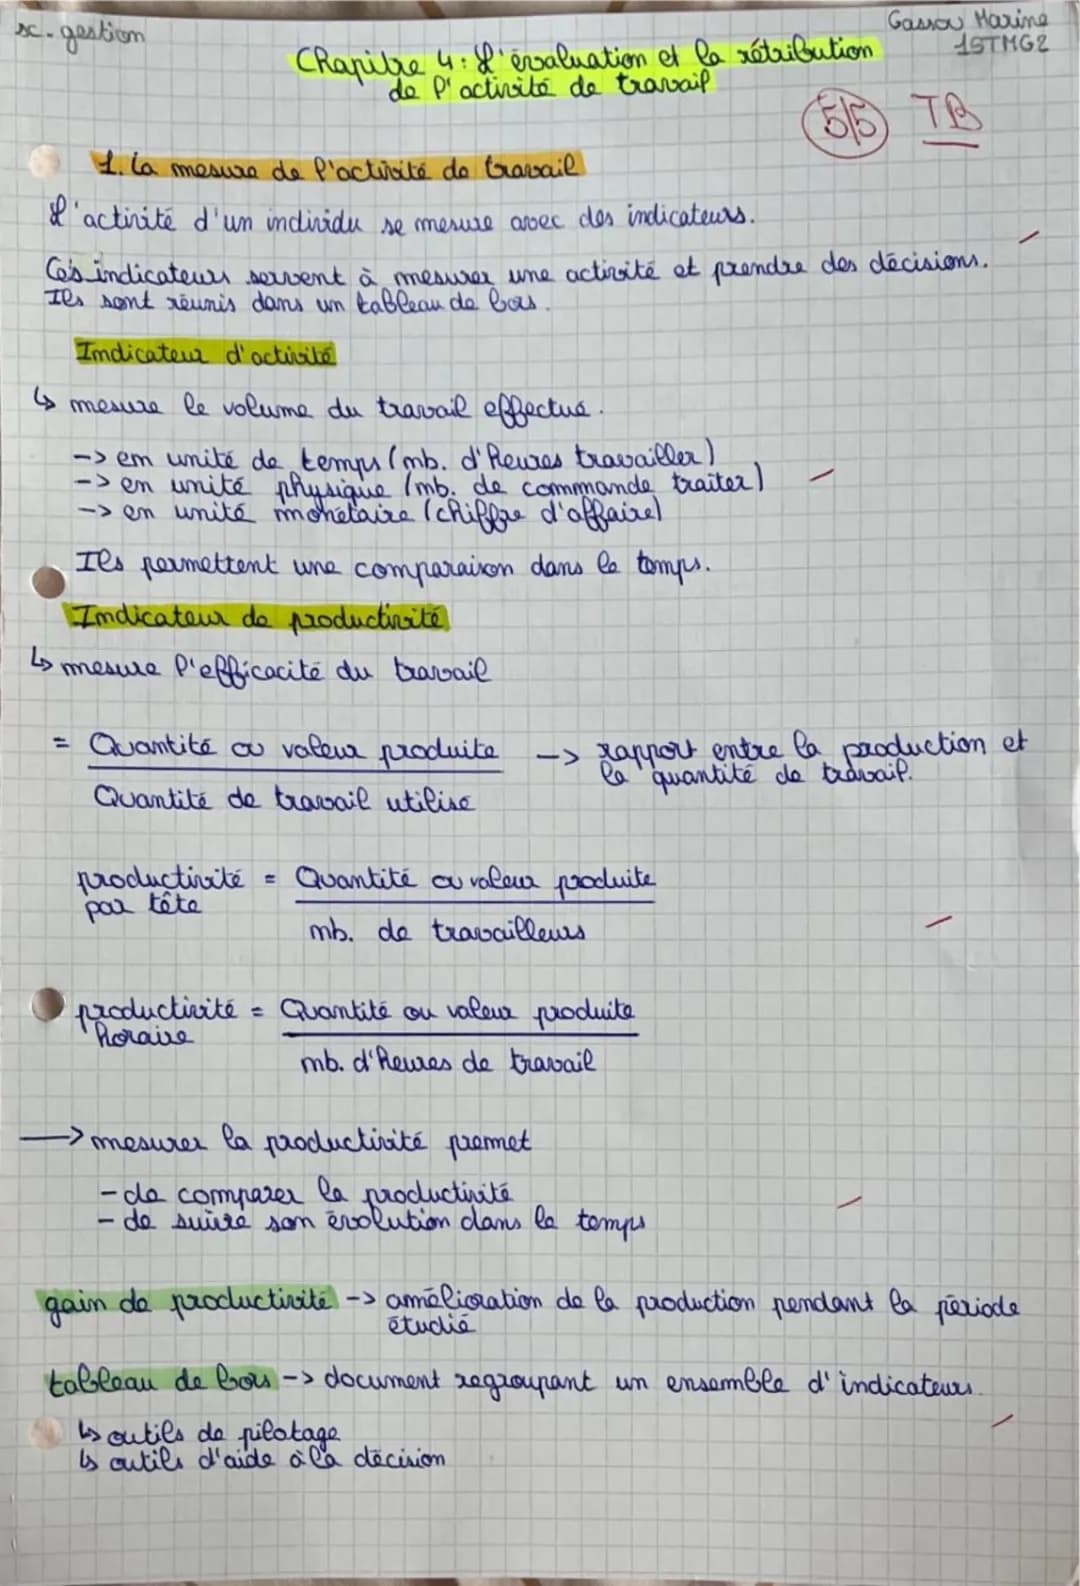 sc. gestion
Gassou Marine
1STMG2
Chapitre 4 : L'évaluation et la rétribution
de l'activité de travail
5/5 TB
1. La mesure de l'activité de travail
L'activité d'un individu se mesure avec des indicateurs.
Ces indicateurs servent à mesurer une activité et prendre des décisions.
Ils sont réunis dans un tableau de bors.
Indicateur d'activité
↳ mesure le volume du travail effectué.
-> en unité de temps (nb. d'heures travailler)
-> en unité physique (nb. de commande traiter)
-> en unité monétaire (chiffre d'affaire)
Ils permettent une comparaison dans le temps.
Indicateur de productivité
↳ mesure l'efficacité du travail
= Quantité ou valeur produite -> rapport entre la production et
la quantité de travail.
Quantité de travail utilisé
productivité = Quantité ou valeur produite
par tête
nb. de travailleurs
productivité = Quantité ou valeur produite
horaire
nb. d'heures de travail
-> mesurer la productivité premet
- de comparer la productivité
- de suivre son évolution dans le temps
gain de productivité -> amélioration de la production pendant la période
étudié
tableau de bors -> document regroupant un ensemble d'indicateurs.
↳ outils de pilotage
↳ outils d'aide à la décision